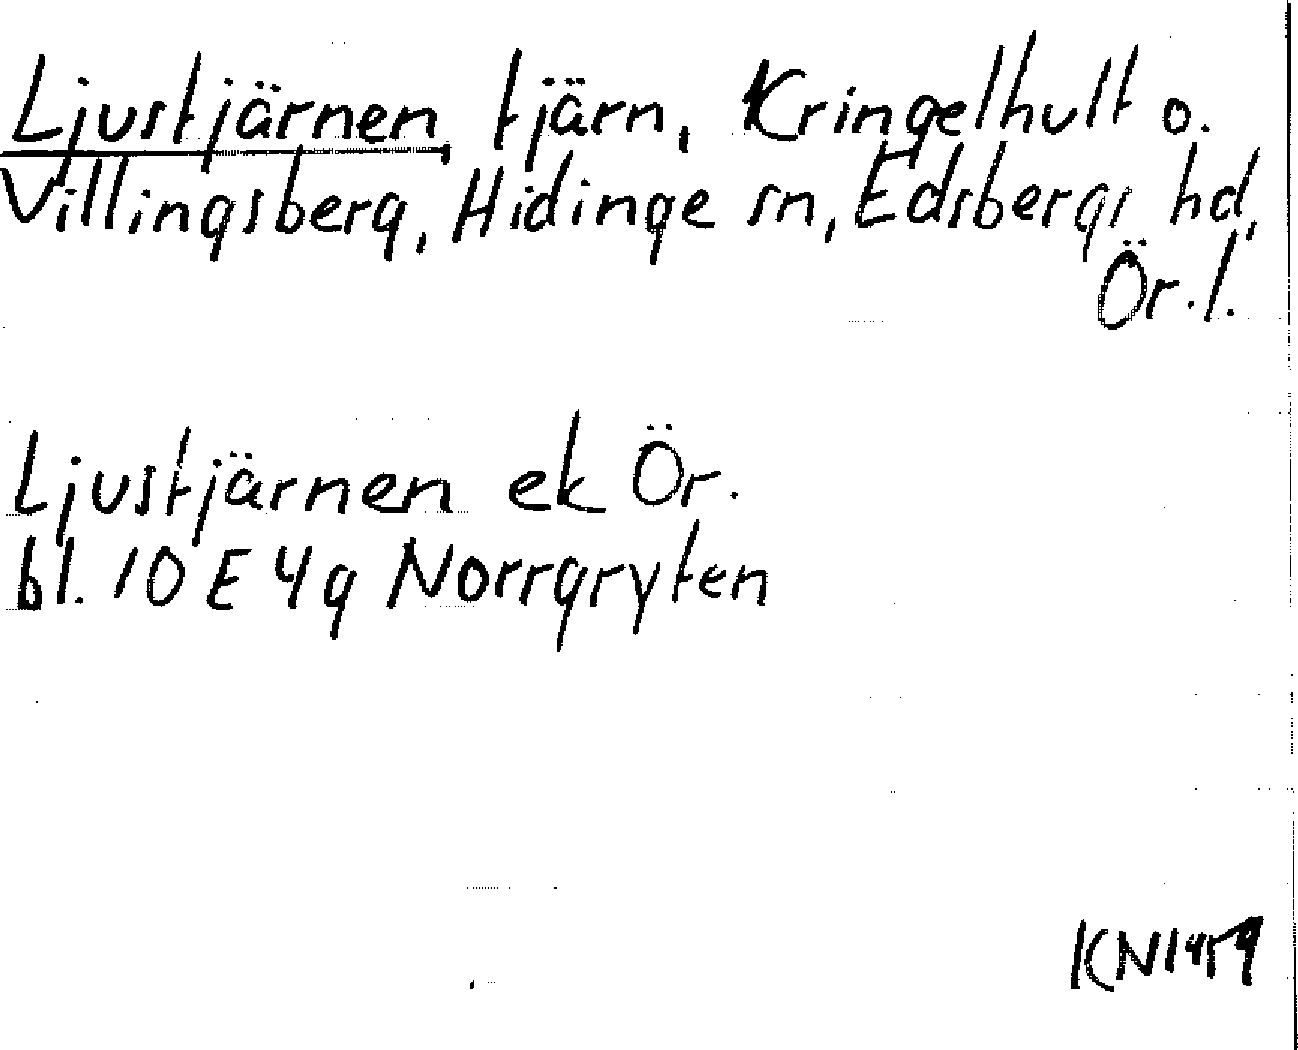 Ljustjärnen tjärn, Kringelhult o.
Villingsberg, Hidinge sn, Edsbergs hd,
Ör.l.
Ljustjärnen ek Ör.
bl. 10 E 4g Norrgryten